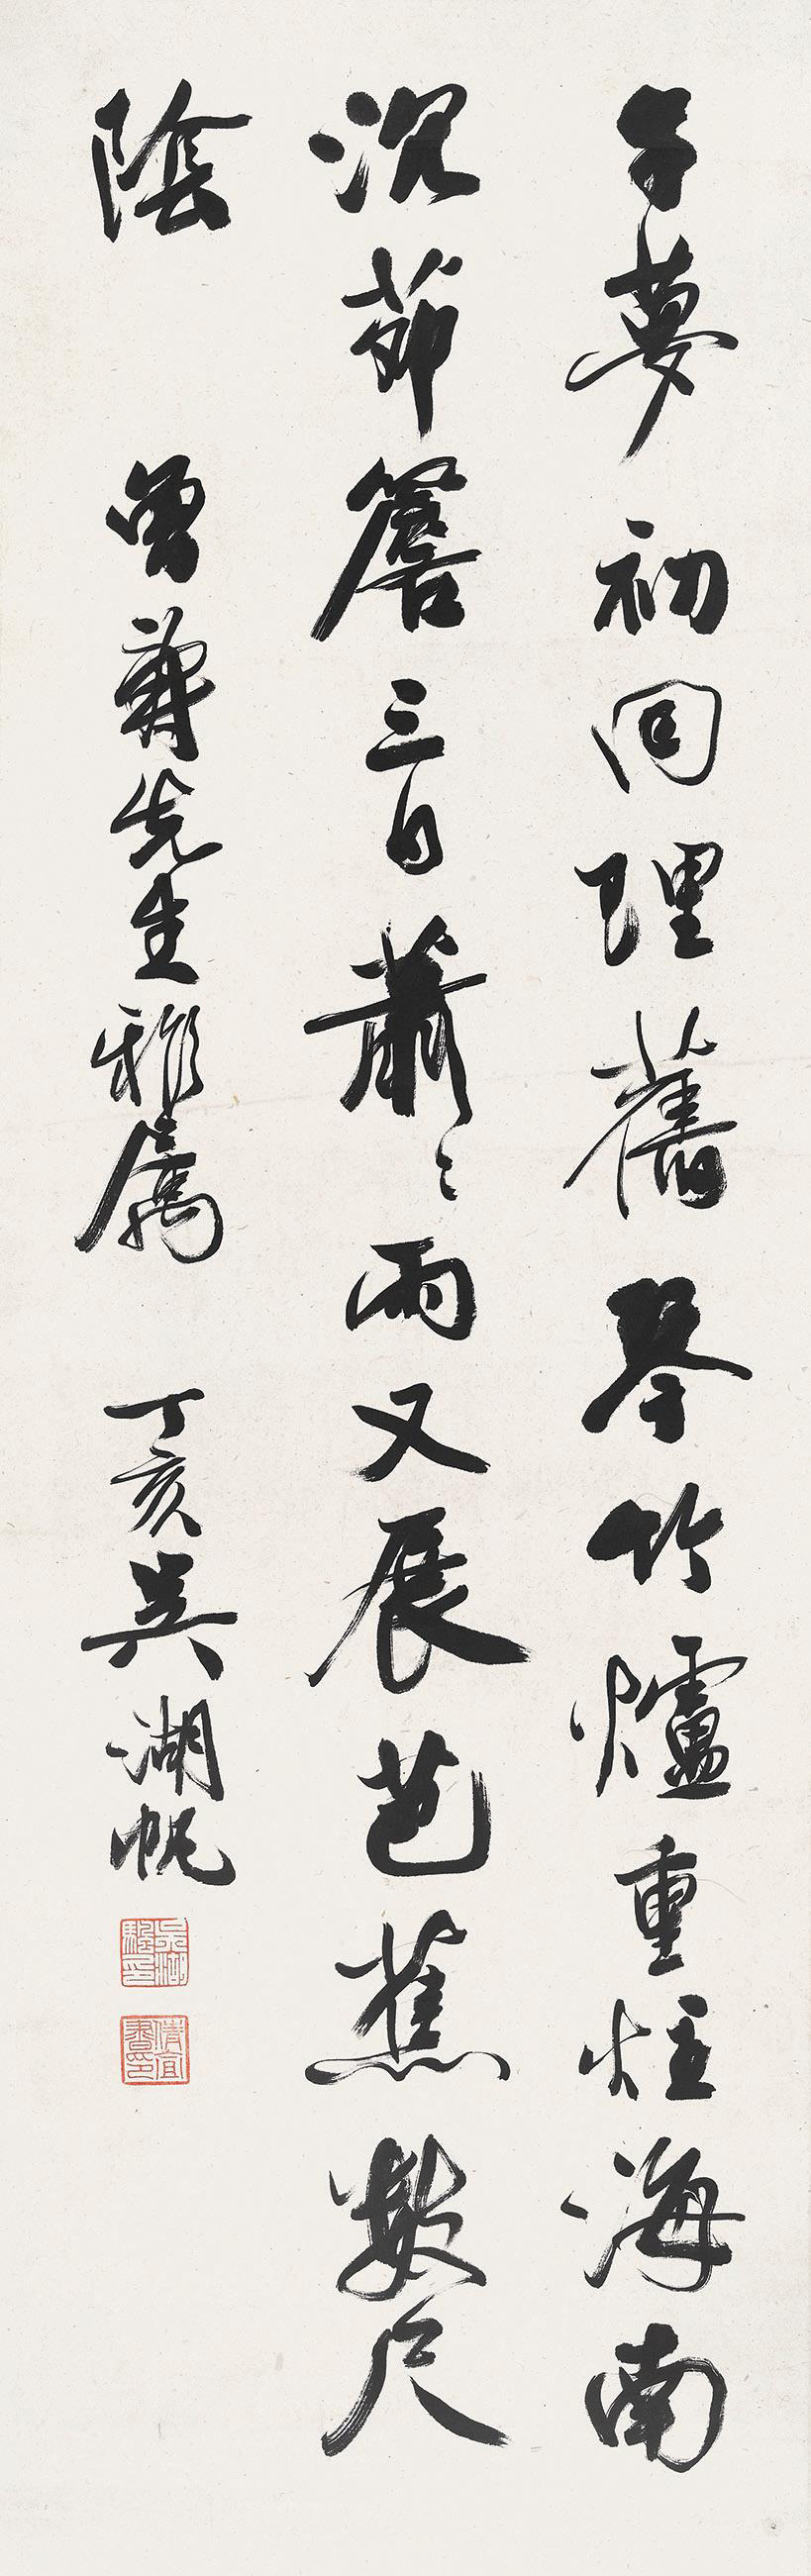 午夢初回理舊琴竹爐重炷海南
沉茆簷三日蕭〻雨又展芭蕉數尺
陰 曾 先生雅屬 丁亥吳湖帆
吳湖颿印